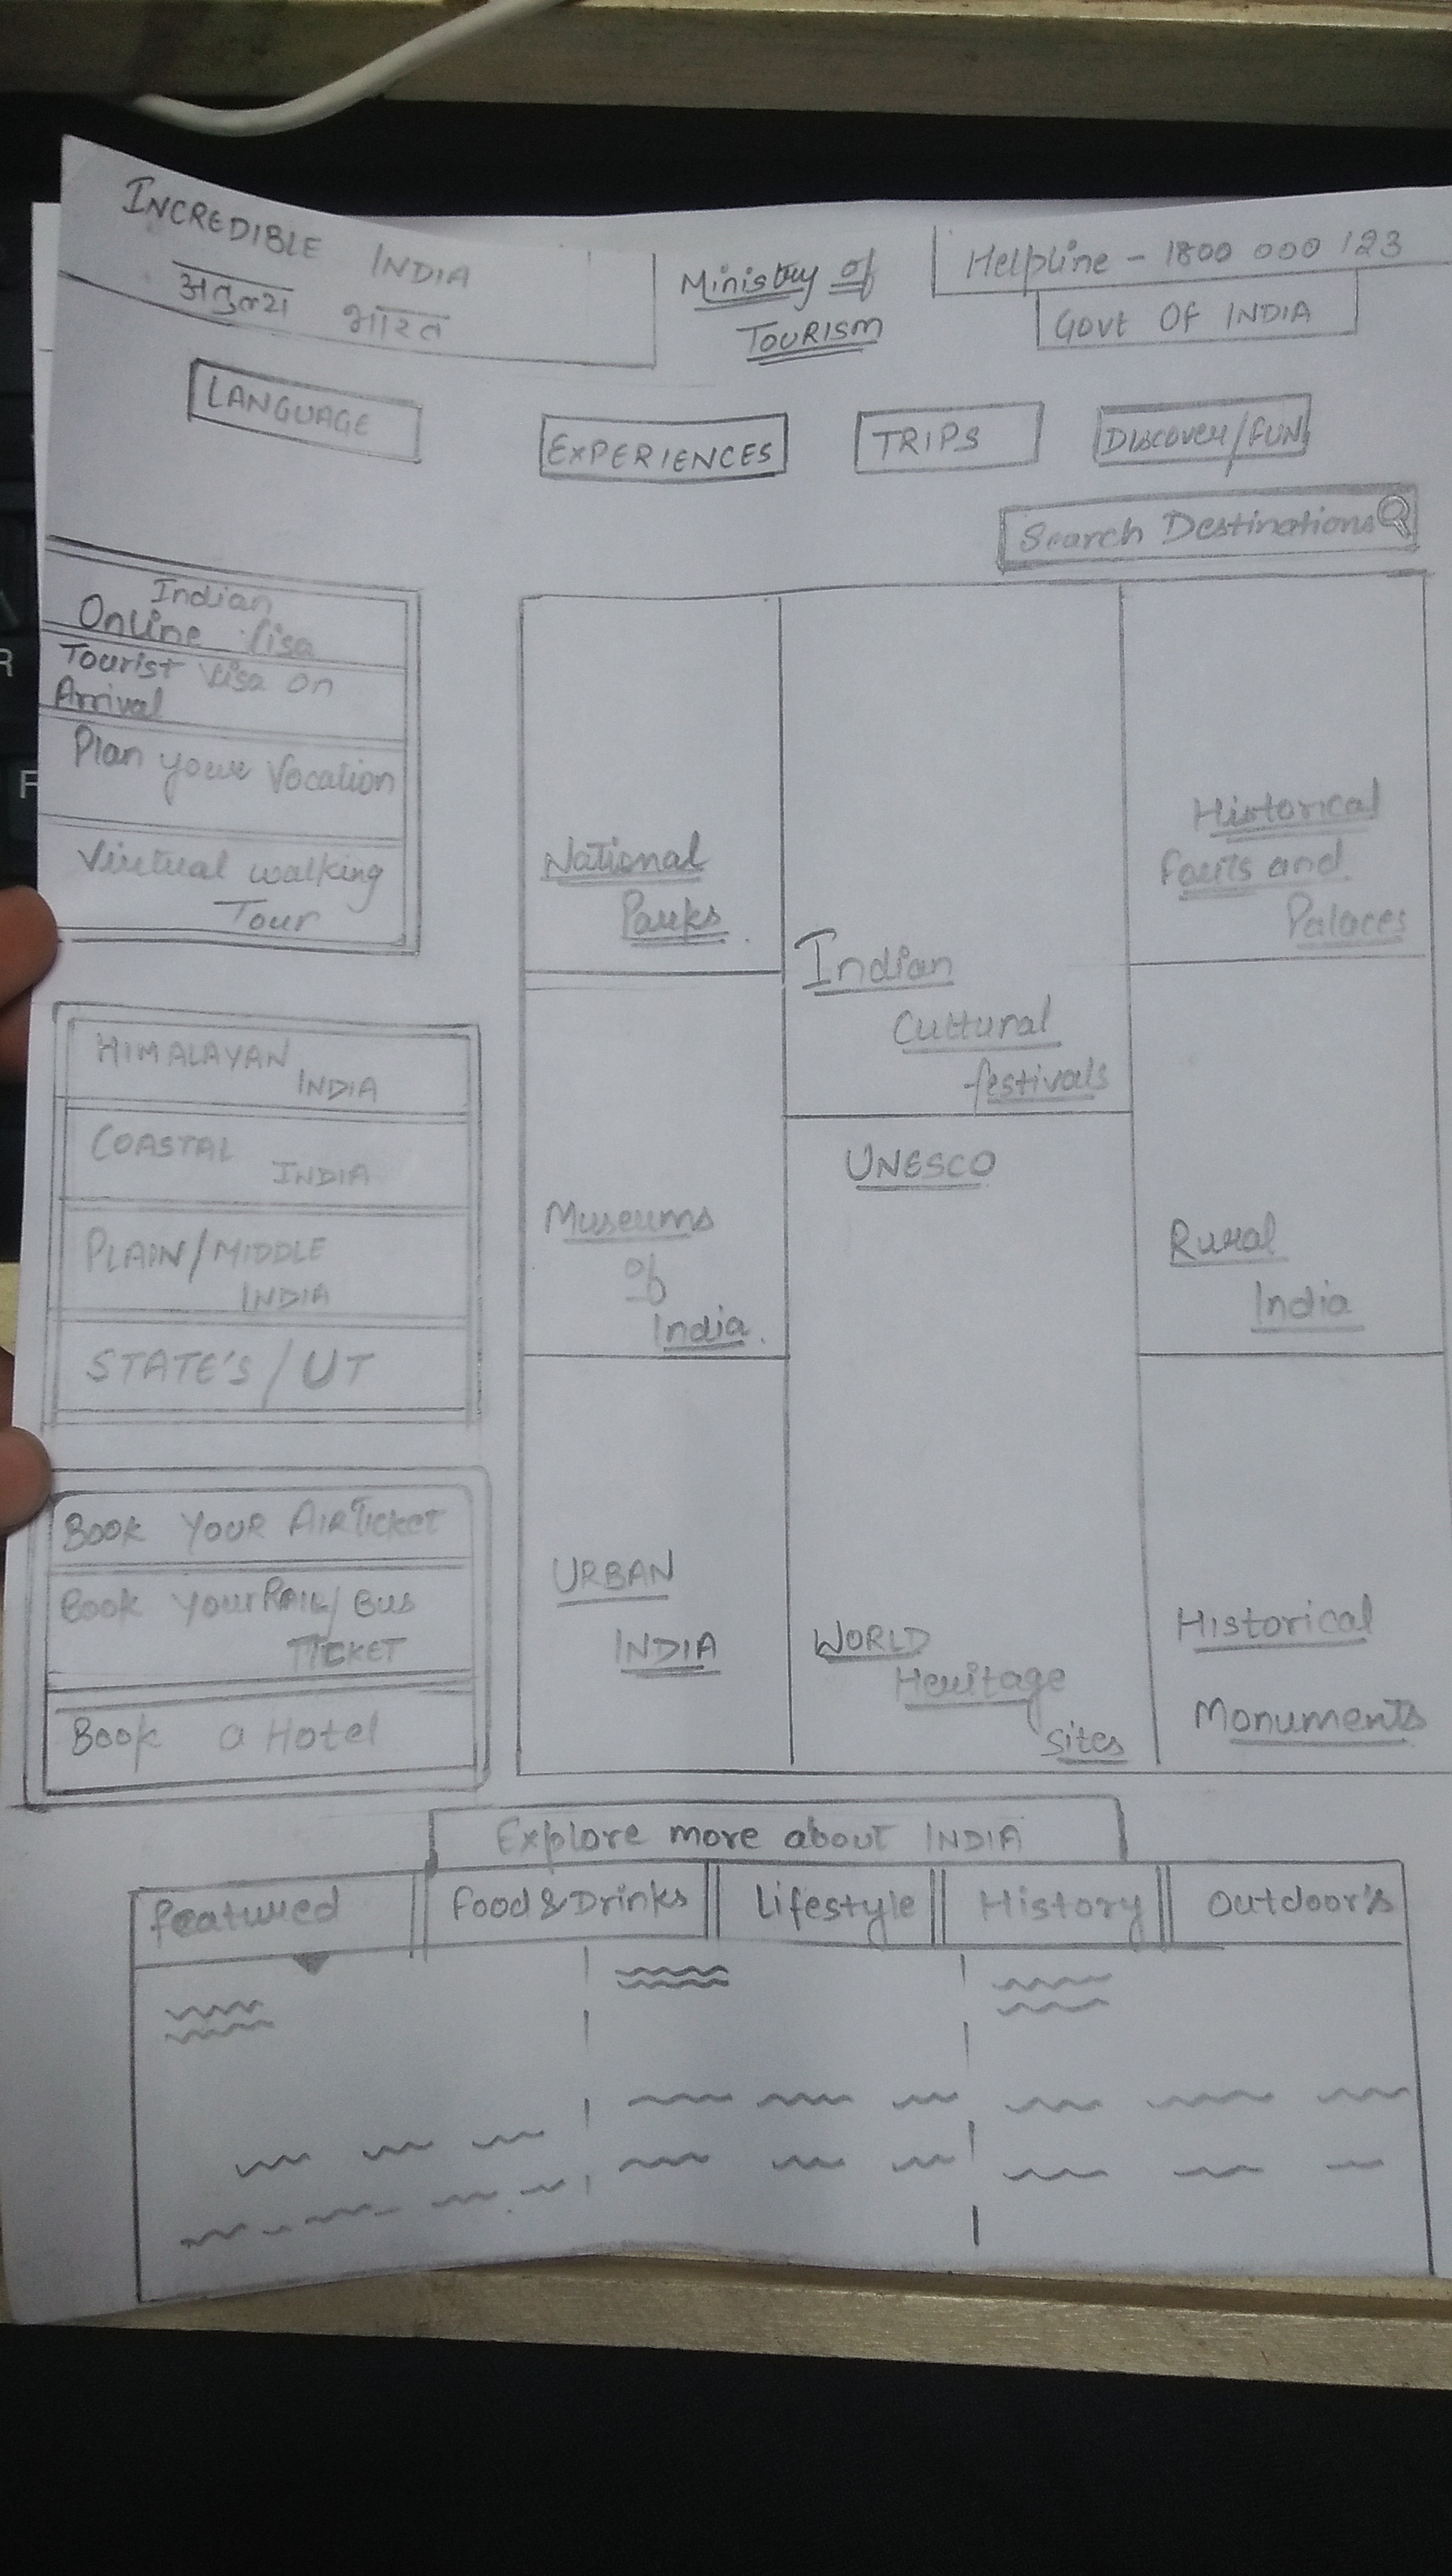 INCREDIBLE INDIA
अतुल्य भारत
Ministry of
TOURISM
Helpline - 1800 000 123
GOVT OF INDIA
LANGUAGE
EXPERIENCES
TRIPS
DISCOVER/FUN
Search Destinations
Indian
Online Visa
Tourist Visa on
Arrival
Plan your Vocation
Virtual walking
Tour
HIMALAYAN
INDIA
COASTAL
INDIA
PLAIN/MIDDLE
INDIA
STATE'S / UT
BOOK YOUR AIRTICKET
Book YourRAIL/ BUS
TICKET
Book a Hotel
National
Parks.
Museums
of
India.
URBAN
INDIA
Indian
Cultural
festivals
UNESCO
WORLD
Heritage
Sites
Historical
Forts and
Palaces
Rural
India
Historical
Monuments
Explore more about INDIA
featured
Food & Drinks
Lifestyle
History
Outdoor's
R
F